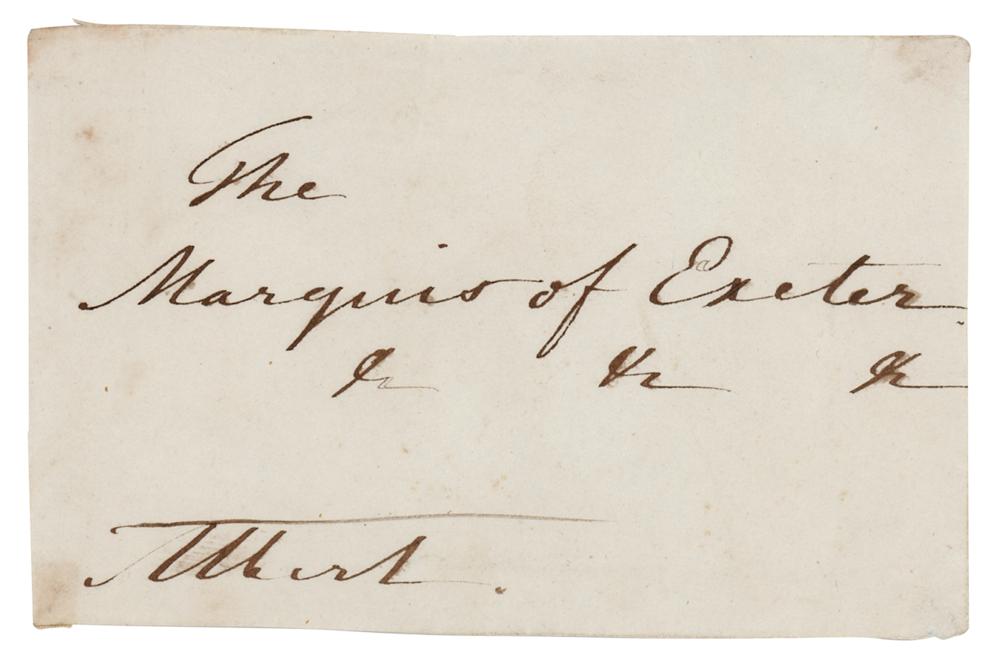 The
Marquis of Exeter.
&c &c &c
Albert.